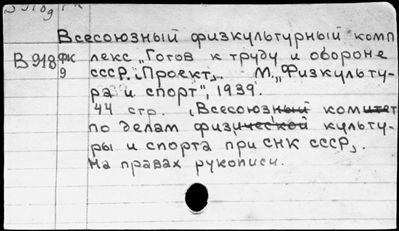 Всесоюзный физкультурный комп
В918 ФК лекс „Готов к труду и обороне
9 СССР". Проект. М., „Физкульту-
ра и спорт", 1939.
44 стр. (Всесоюзный комитет
по делам физической культу-
ры и спорта при СНК СССР).
На правах рукописи.